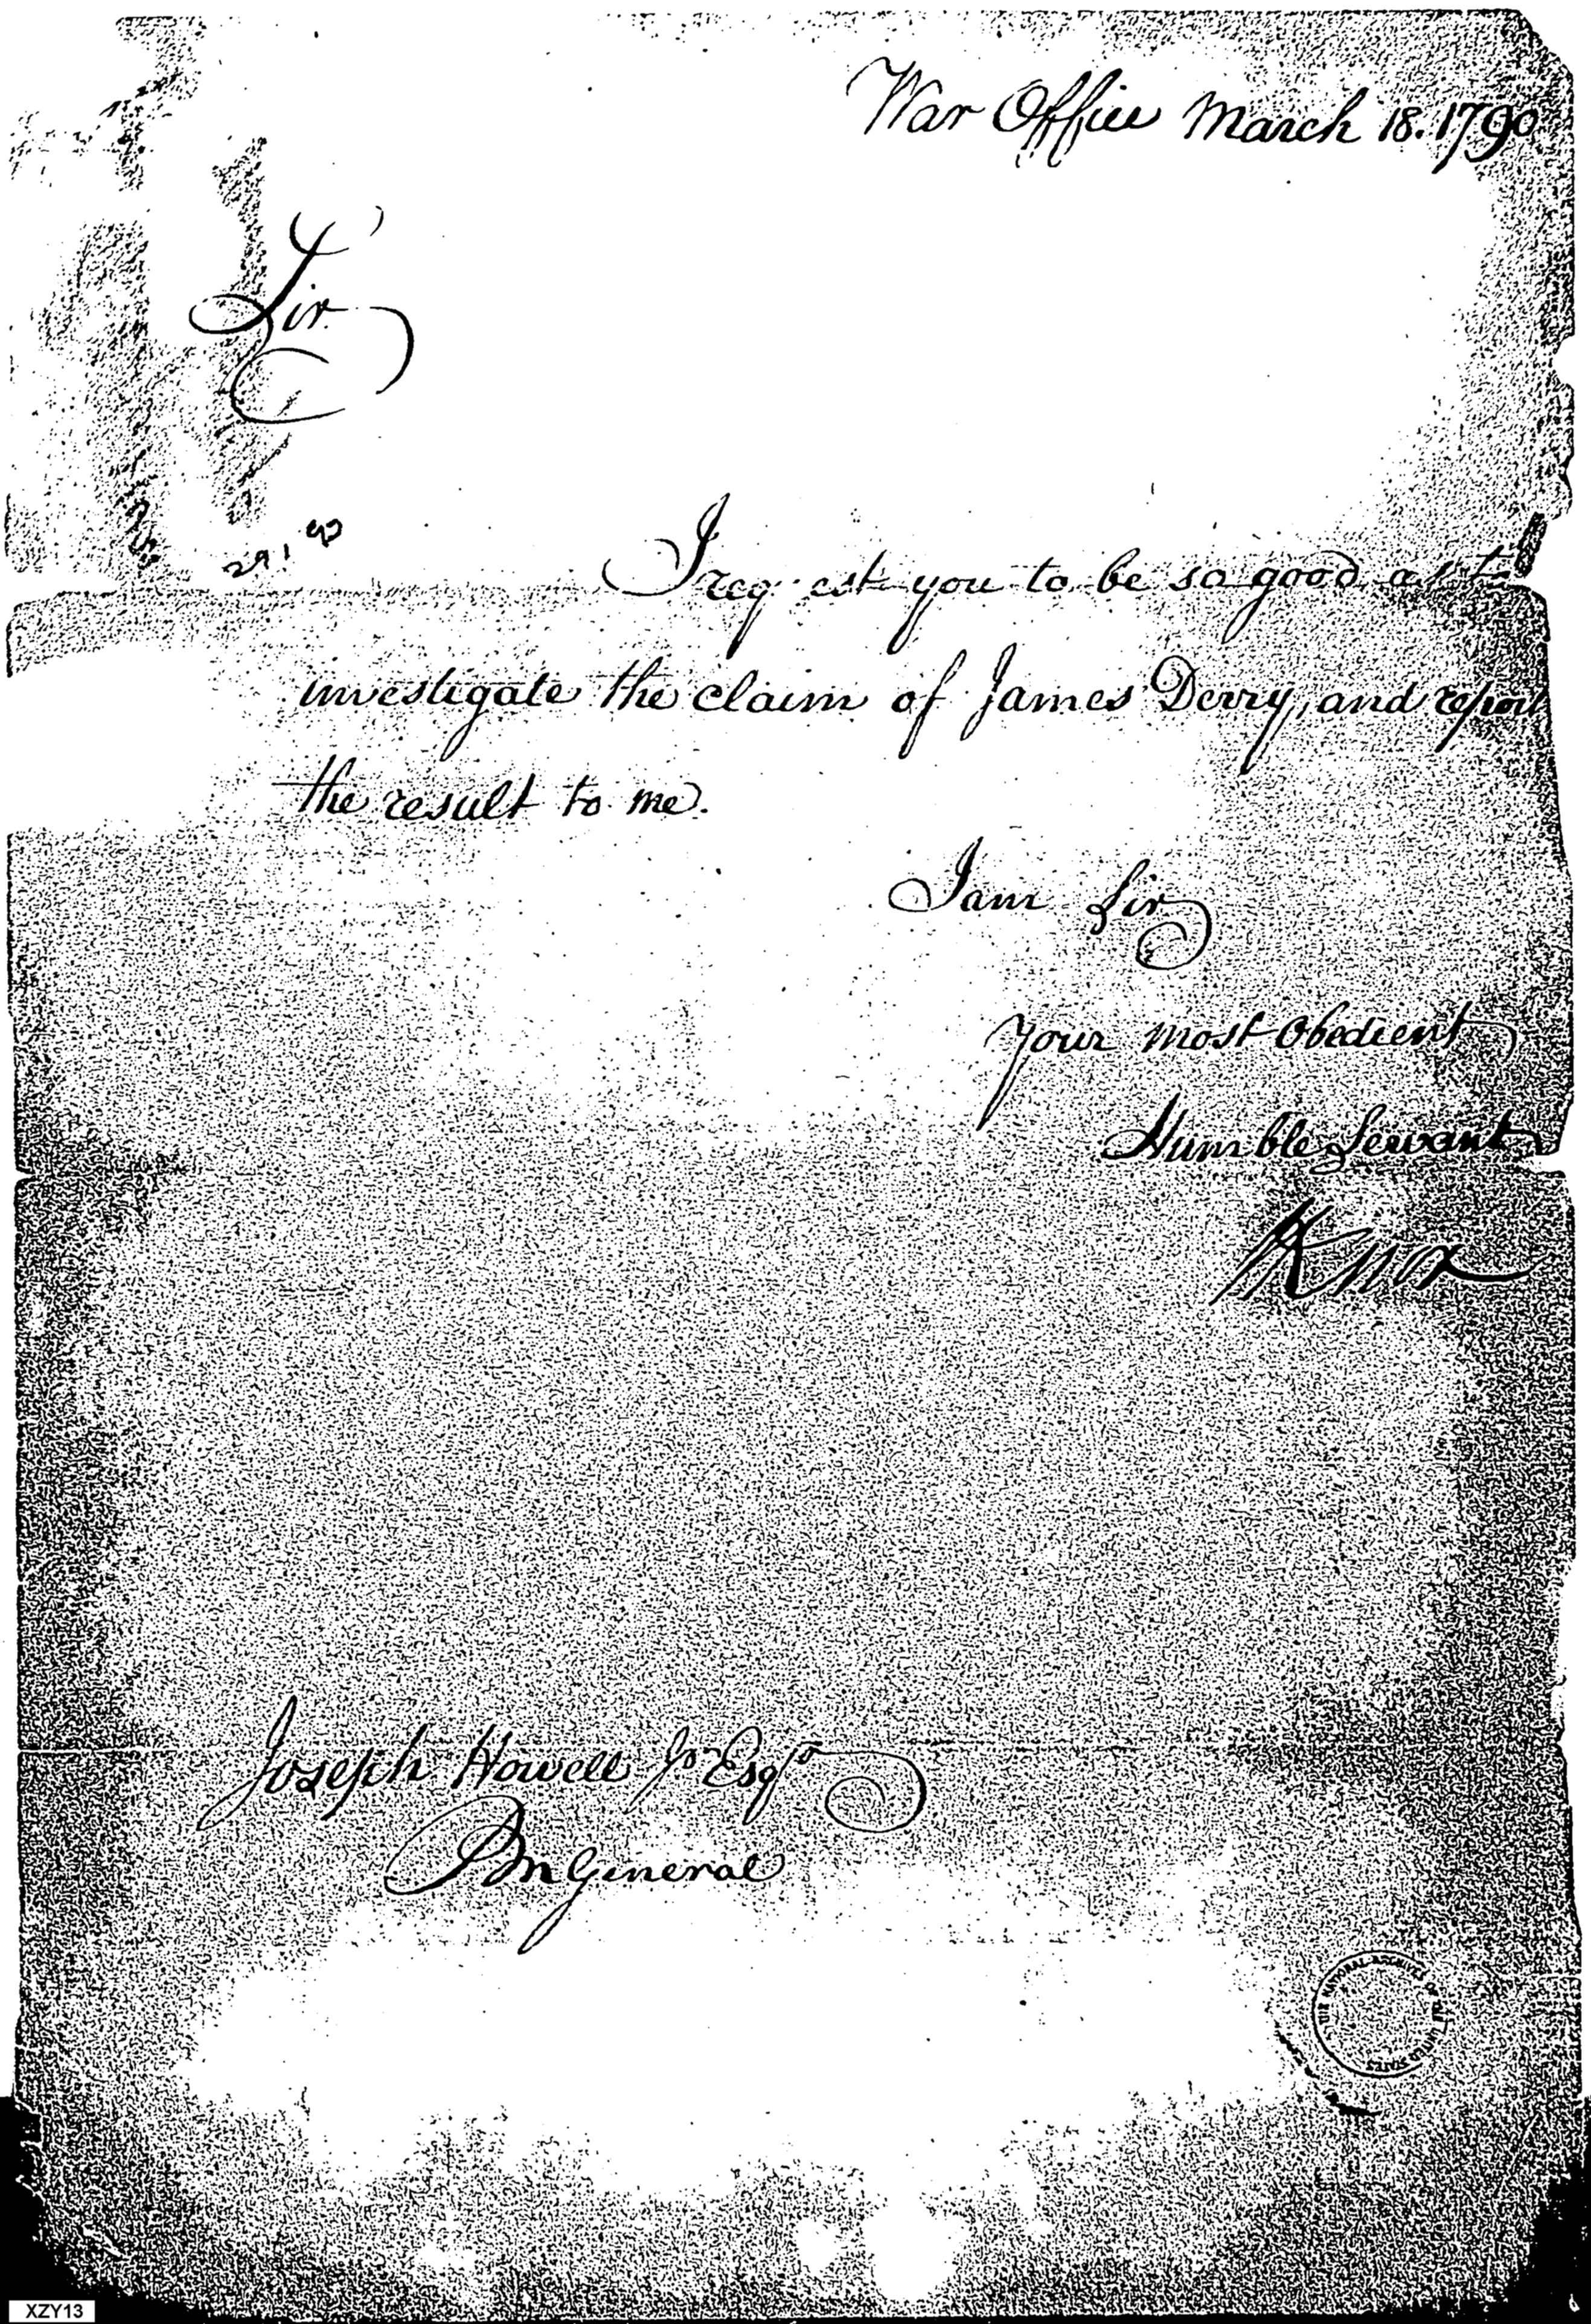 War Office March 18. 1790
Sir
I request you to be so good as to
investigate the claim of James Derry, and report
the result to me.
I am Sir
Your most Obedient
Humble Servant
HKnox
Joseph Howell Jr Esqr
PM General
THE NATIONAL ARCHIVES OF THE UNITED STATES
XZY13